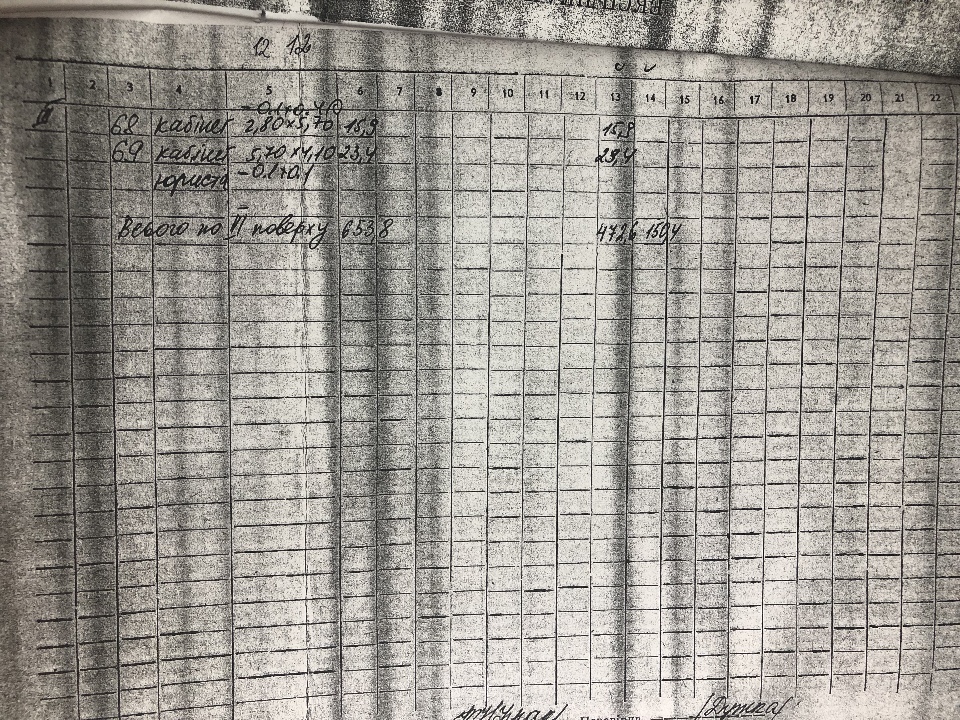 12 12
1 2 3 4 5 6 7 8 9 10 11 12 13 14 15 16 17 18 19 20 21 22
-0,1×0,4
III 68 кабінет 2,80×5,70 15,9 15,9
69 кабінет 5,70×4,10 23,4 23,4
юриста -0,1×0,1
Всього по III поверху 653,8 472,6 150,4